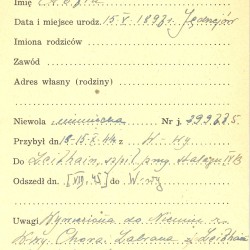 Imię
Data i miejsce urodz. 15.V.1893r. Jędrzejów
Imiona rodziców
Zawód
Adres własny (rodziny)
Niewola niemiecka Nr j. 299335
Przybył dn. do
Do Zeithain, szpit. jeny Stalagu IV B
Odszedł dn. [VIII.45] do W-wy
Uwagi Wywieziona do Niemiec z
W-wy. Chora. Zabrana z Zeithain